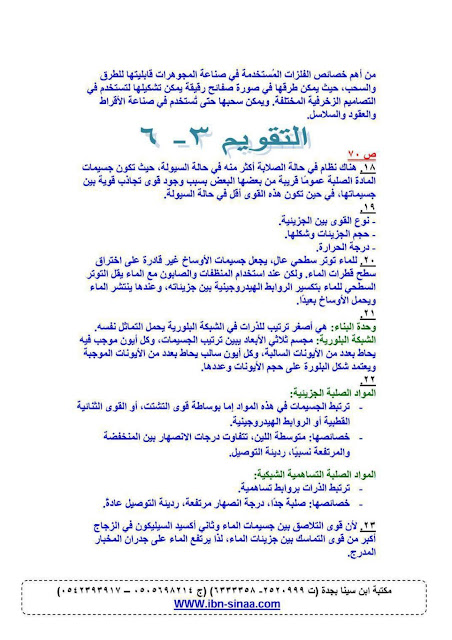 من أهم خصائص الفلزات المُستخدمة في صناعة المجوهرات قابليتها للطرق
والسحب، حيث يمكن طرقها في صورة صفائح رقيقة يمكن تشكيلها لتستخدم في
التصاميم الزخرفية المختلفة. ويمكن سحبها حتى تُستخدم في صناعة الأقراط
والعقود والسلاسل.
التقويم ٣- ٦
ص ٧٠
١٨. هناك نظام في حالة الصلابة أكثر منه في حالة السيولة، حيث تكون جسيمات
المادة الصلبة عمومًا قريبة من بعضها البعض بسبب وجود قوى تجاذب قوية بين
جسيماتها، في حين تكون هذه القوى أقل في حالة السيولة.
١٩.
- نوع القوى بين الجزيئية.
- حجم الجزيئات وشكلها.
- درجة الحرارة.
٢٠. للماء توتر سطحي عال، يجعل جسيمات الأوساخ غير قادرة على اختراق
سطح قطرات الماء. ولكن عند استخدام المنظفات والصابون مع الماء يقل التوتر
السطحي للماء بتكسير الروابط الهيدروجينية بين جزيئاته، وعندها ينتشر الماء
ويحمل الأوساخ بعيدًا.
٢١.
وحدة البناء: هي أصغر ترتيب للذرات في الشبكة البلورية يحمل التماثل نفسه.
الشبكة البلورية: مجسم ثلاثي الأبعاد يبين ترتيب الجسيمات، وكل أيون موجب فيه
يحاط بعدد من الأيونات السالبة، وكل أيون سالب يحاط بعدد من الأيونات الموجبة
ويعتمد شكل البلورة على حجم الأيونات وعددها.
٢٢.
المواد الصلبة الجزيئية:
- ترتبط الجسيمات في هذه المواد إما بوساطة قوى التشتت، أو القوى الثنائية
القطبية أو الروابط الهيدروجينية.
- خصائصها: متوسطة اللين، تتفاوت درجات الانصهار بين المنخفضة
والمرتفعة نسبيًا، رديئة التوصيل.
المواد الصلبة التساهمية الشبكية:
- ترتبط الذرات بروابط تساهمية.
- خصائصها: صلبة جدًا، درجة انصهار مرتفعة، رديئة التوصيل عادةً.
٢٣. لأن قوى التلاصق بين جسيمات الماء وثاني أكسيد السيليكون في الزجاج
أكبر من قوى التماسك بين جزيئات الماء، لذا يرتفع الماء على جدران المخبار
المدرج.
مكتبة ابن سينا بجدة (ت ٢٥٢٠٩٩٩- ٦٣٣٣٣٥٨) (ج ٠٥٠٥٦٩٨٢١٤ – ٠٥٤٢٣٩٣٩١٧)
WWW.ibn-sinaa.com